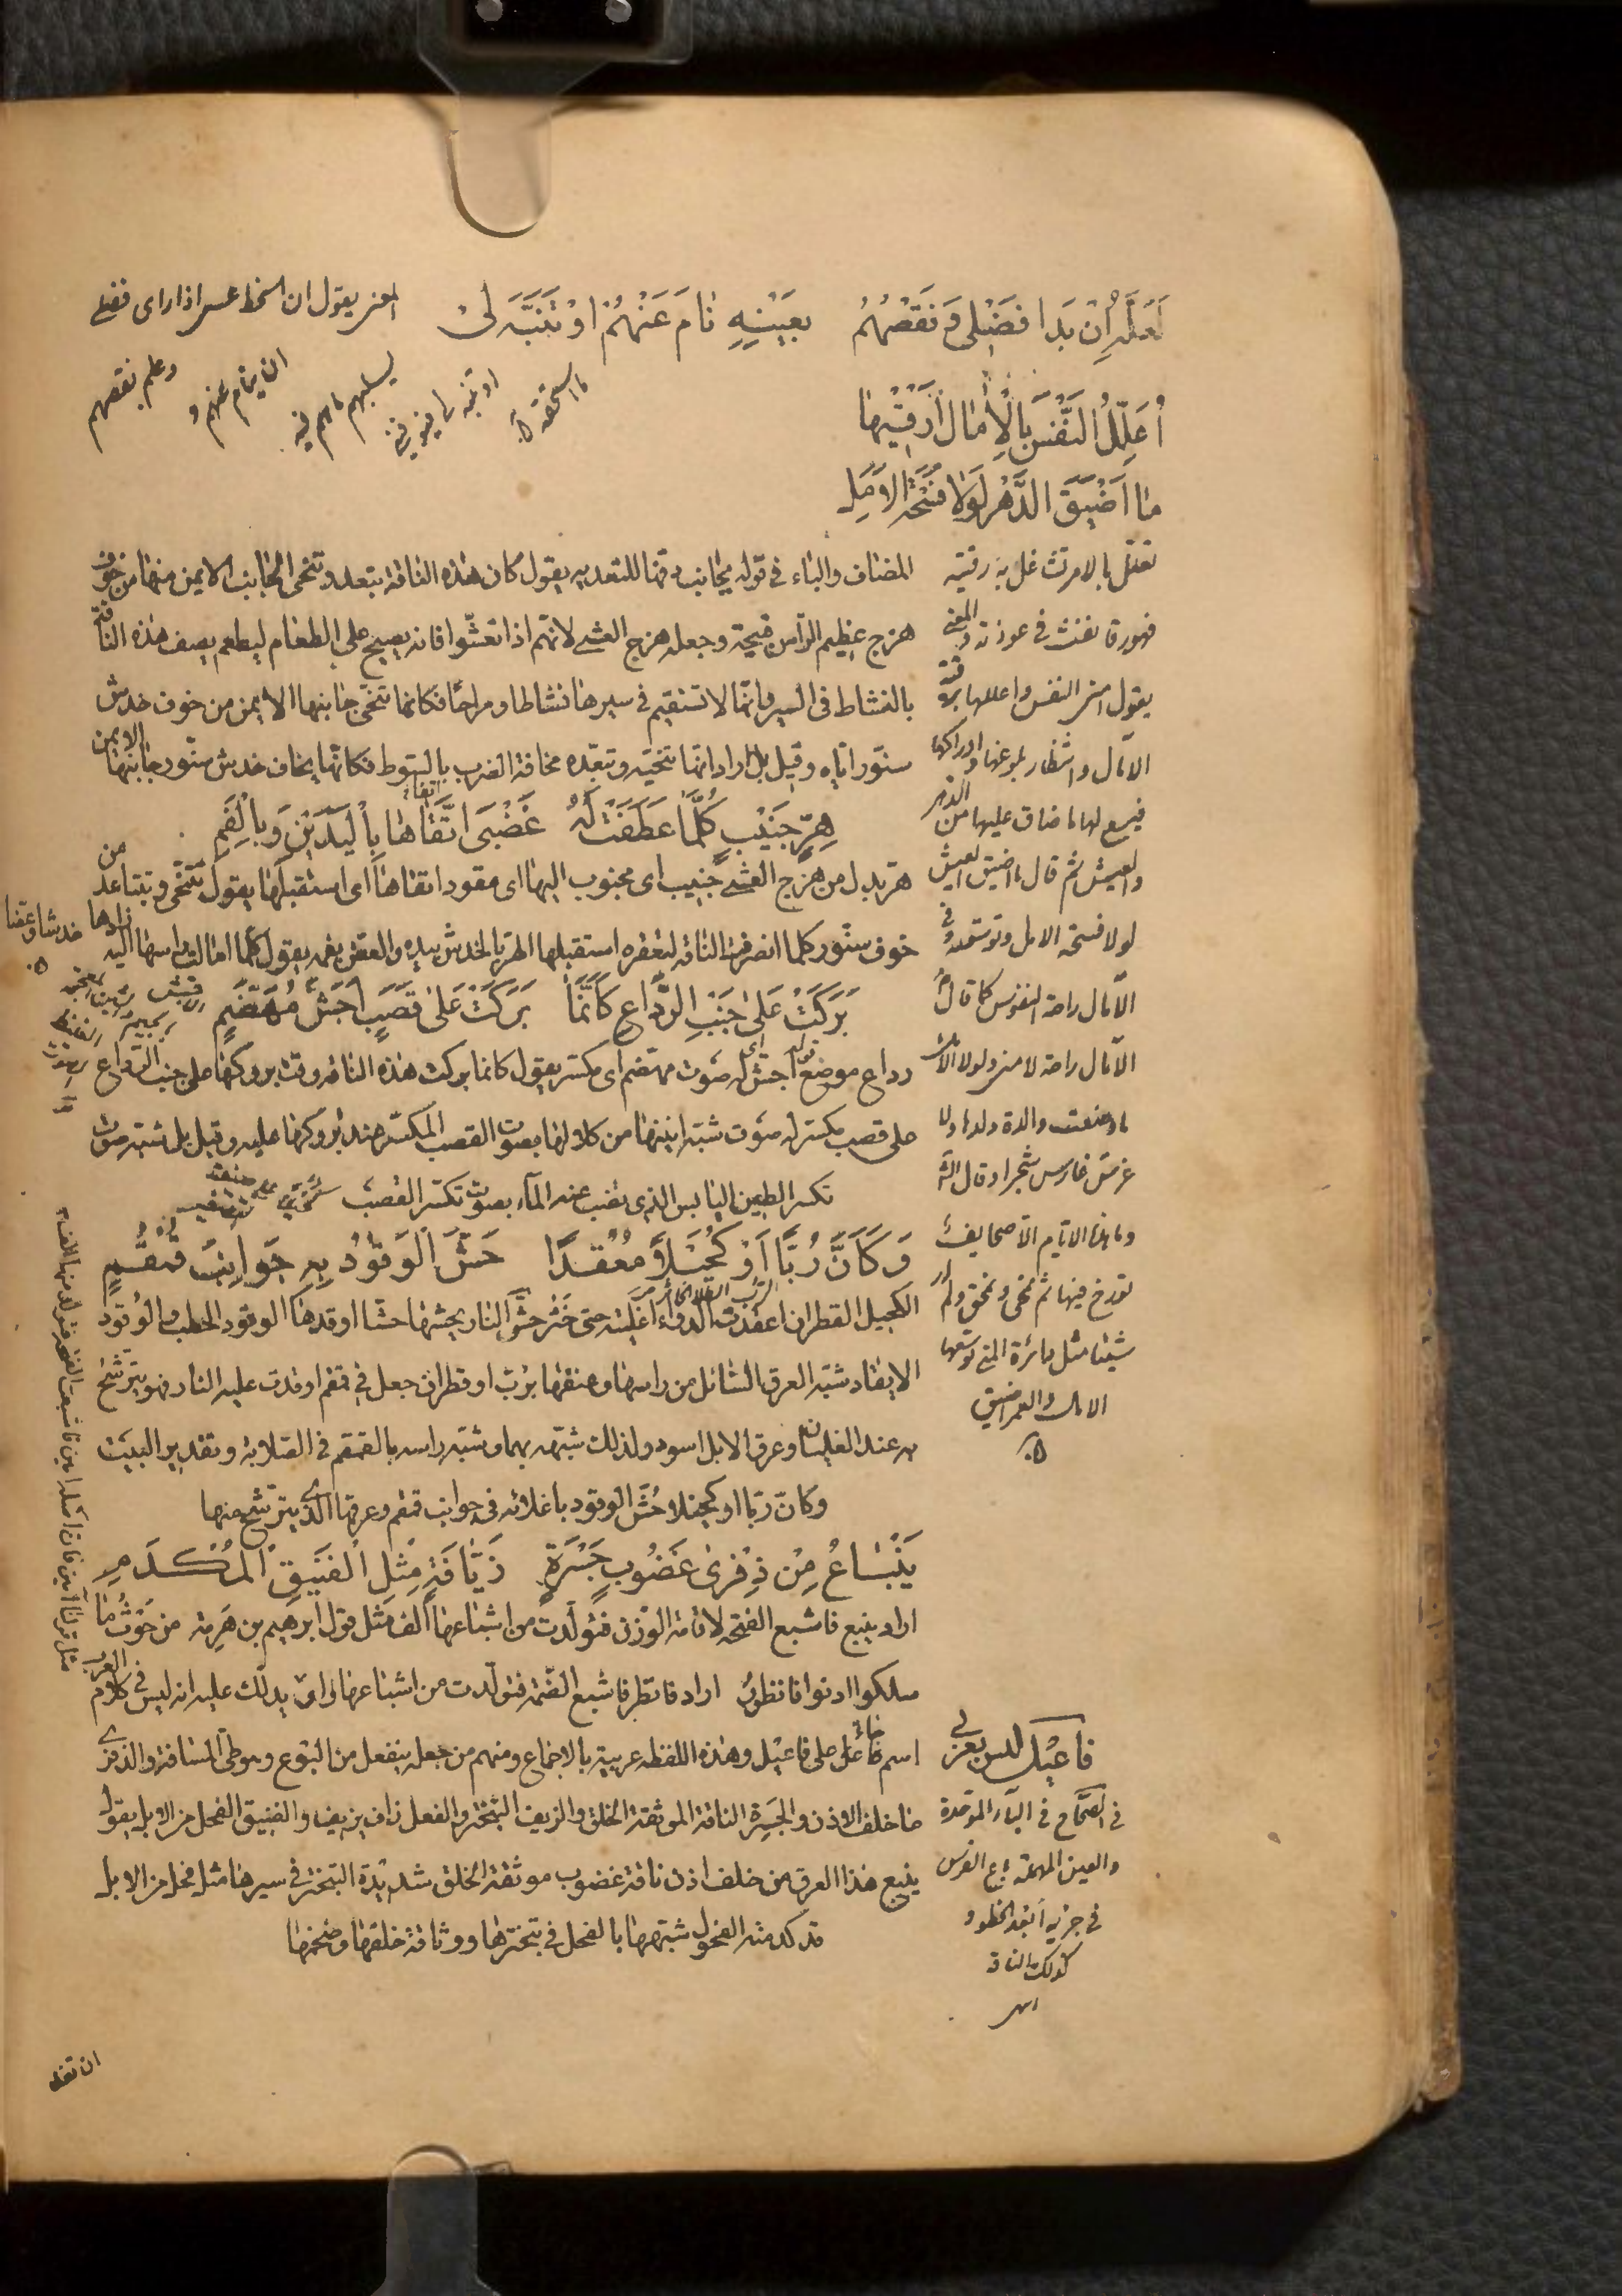 لَعَلَّهُ اِنْ بَدَا فَضْلِى وَ نَقْصُهُمُ بِعَيْنِهِ نَامَ عَنْهُمْ اَوْ تَنَبَّهَ لِى
المعنى يقول ان الحظ عسى اذا راى فضلى
وعلم نقصهم
ان ينام عنهم و
يسلبهم ما هم فيه
او تنبه لى فيوفينى
ما استحقه
اُعَلِّلُ النَّفْسَ بِالْاٰمَالِ اَرْقُبُهَا
مَا اَضْيَقَ الدَّهْرَ لَوْلَا فُسْحَةُ الْاَمَلِ
المضاف والباء فى قوله بجانب دفها للتعديه يقول كان هذه الناقة تبتعد وتتنحى الجانب الايمن منها من خوف
هزج عظيم الرأس قبيحة وجعله هزج العشى لانهم اذا تعشّوا فانه يصيح على الطعام ليطعم يصف هذه الناقة
بالنشاط فى السير وانها لا تستقيم فى سيرها نشاطا ومراحًا فكانما تنحّى جانبها الايمن من خوف خدش
سنّور اياه وقيل بل اراد انها تنحّيه وتبعّده مخافة الضرب بالسوط فكانها يخاف خدش سنّور جانبها الايمن
هِرٍّ جَنِيْبٍ كُلَّمَا عَطَفَتْ لَهُ غَضْبَى اتَّقَاهَا بِالْيَدَيْنِ وَبِالْفَمِ
هر بدل من هزج العشى جنيب اى مجنوب اليها اى مقود اتقاها اى استقبلها يقول تتنحى وتتباعد من
خوف سنّور كلما انصرفت الناقة لتعقره استقبلها الهر بالخدش بيده والعض بفمه يقول كلما امالت راسها اليه زادها خدشا وعضا
بَرَكَتْ عَلٰى جَنْبِ الرِّدَاعِ كَاَنَّمَا بَرَكَتْ عَلٰى قَصَبٍ اَجَشَّ مُهَضَّمِ
رداع موضع اجش له صوت مهضم اى مكسر يقول كانما بركت هذه الناقة وقت بروكها على جنب الرداع
على قصب مكسر له صوت شبه انينها من كلالها بصوت القصب المكسّر عند بروكها عليه وقيل بل شبه صوت
تكسر الطين اليابس الذى نضب عنه الماء بصوت تكسر القصب
وَكَاَنَّ رُبًّا اَوْ كُحَيْلًا مُعْقَدًا حَشَّ الْوَقُوْدُ بِهِ جَوَانِبَ قُمْقُمِ
الكحيل القطران اعقدت الدواء اغليته حتى خثر حشّ النار يحشها حشّا اوقدها الوقود الحطب والوُقود
الايقاد شبّه العرق السائل من راسها وعنقها برُبّ او قطران جعل فى قمقم اوقدت عليه النار فهو يترشّح
به عند الغليان وعرق الابل اسود ولذلك شبهه بهما وشبّه راسه بالقمقم فى الصلابة وتقدير البيت
وكانّ ربّا او كحيلا حُشّ الوقود باغلائه فى جوانب قمقم وعرقها الذى يترشح منها
يَنْبَاعُ مِنْ ذِفْرٰى غَضُوْبٍ جَسْرَةٍ زَيَّافَةٍ مِثْلَ الْفَنِيْقِ الْمُكْدَمِ
اراد ينبع فاشبع الفتحة لاقامة الوزن فتولّدت من اشباعها الف مثل قول ابرهيم بن هرمة من حَوثُ ما
سلكوا ادنوا فانظور اراد فانظر فاشبع الضمّة فتولّدت من اشباعها واو يدلّك عليه انه ليس فى كلام العرب
اسم جاء على فاعيل وهذه اللفظه عربية بالاجماع ومنهم من جعله ينفعل من البوع وهو طىّ المسافة والذفرى
ما خلف الاذن والجَسِرة الناقة الموثقة الخلق والزيف التبختر والفعل زاف يزيف والفنيق الفحل من الابل يقول
ينبع هذا العرق من خلف اذن ناقة غضوب موثقة الخلق شديدة التبختر فى سيرها مثل فحل من الابل
قد كدمته الفحول شبّهها بالفحل فى تبخترها ووثاقة خلقها وضخمها
تعلّل بالامر تشاغل به رقبته
يقول امنى النفس واعللها برقبة
الآمال وانتظار بلوغها وادراكها
فيسع لها ما ضاق عليها من الدهر
والعيش ثم قال ما اضيق العيش
لولا فسحة الامل وتوسعه وفى
الآمال راحة النفوس كما قال
ما وضعت والدة ولدا ولا
غرس غارس شجرا وقال
وما هذه الايام الا صحايف
نورخ فيها ثم نمحى ونمحق ولم ار
شيئا مثل دائرة المنى توسعها
الامال والعمر ضيق
فاعيل ليس بعربى
فى الصحاح فى الباء الموحدة
والعين المهملة باع الفرس
فى جريه ابعد الخطو و
كذلك الناقة
ان تغد